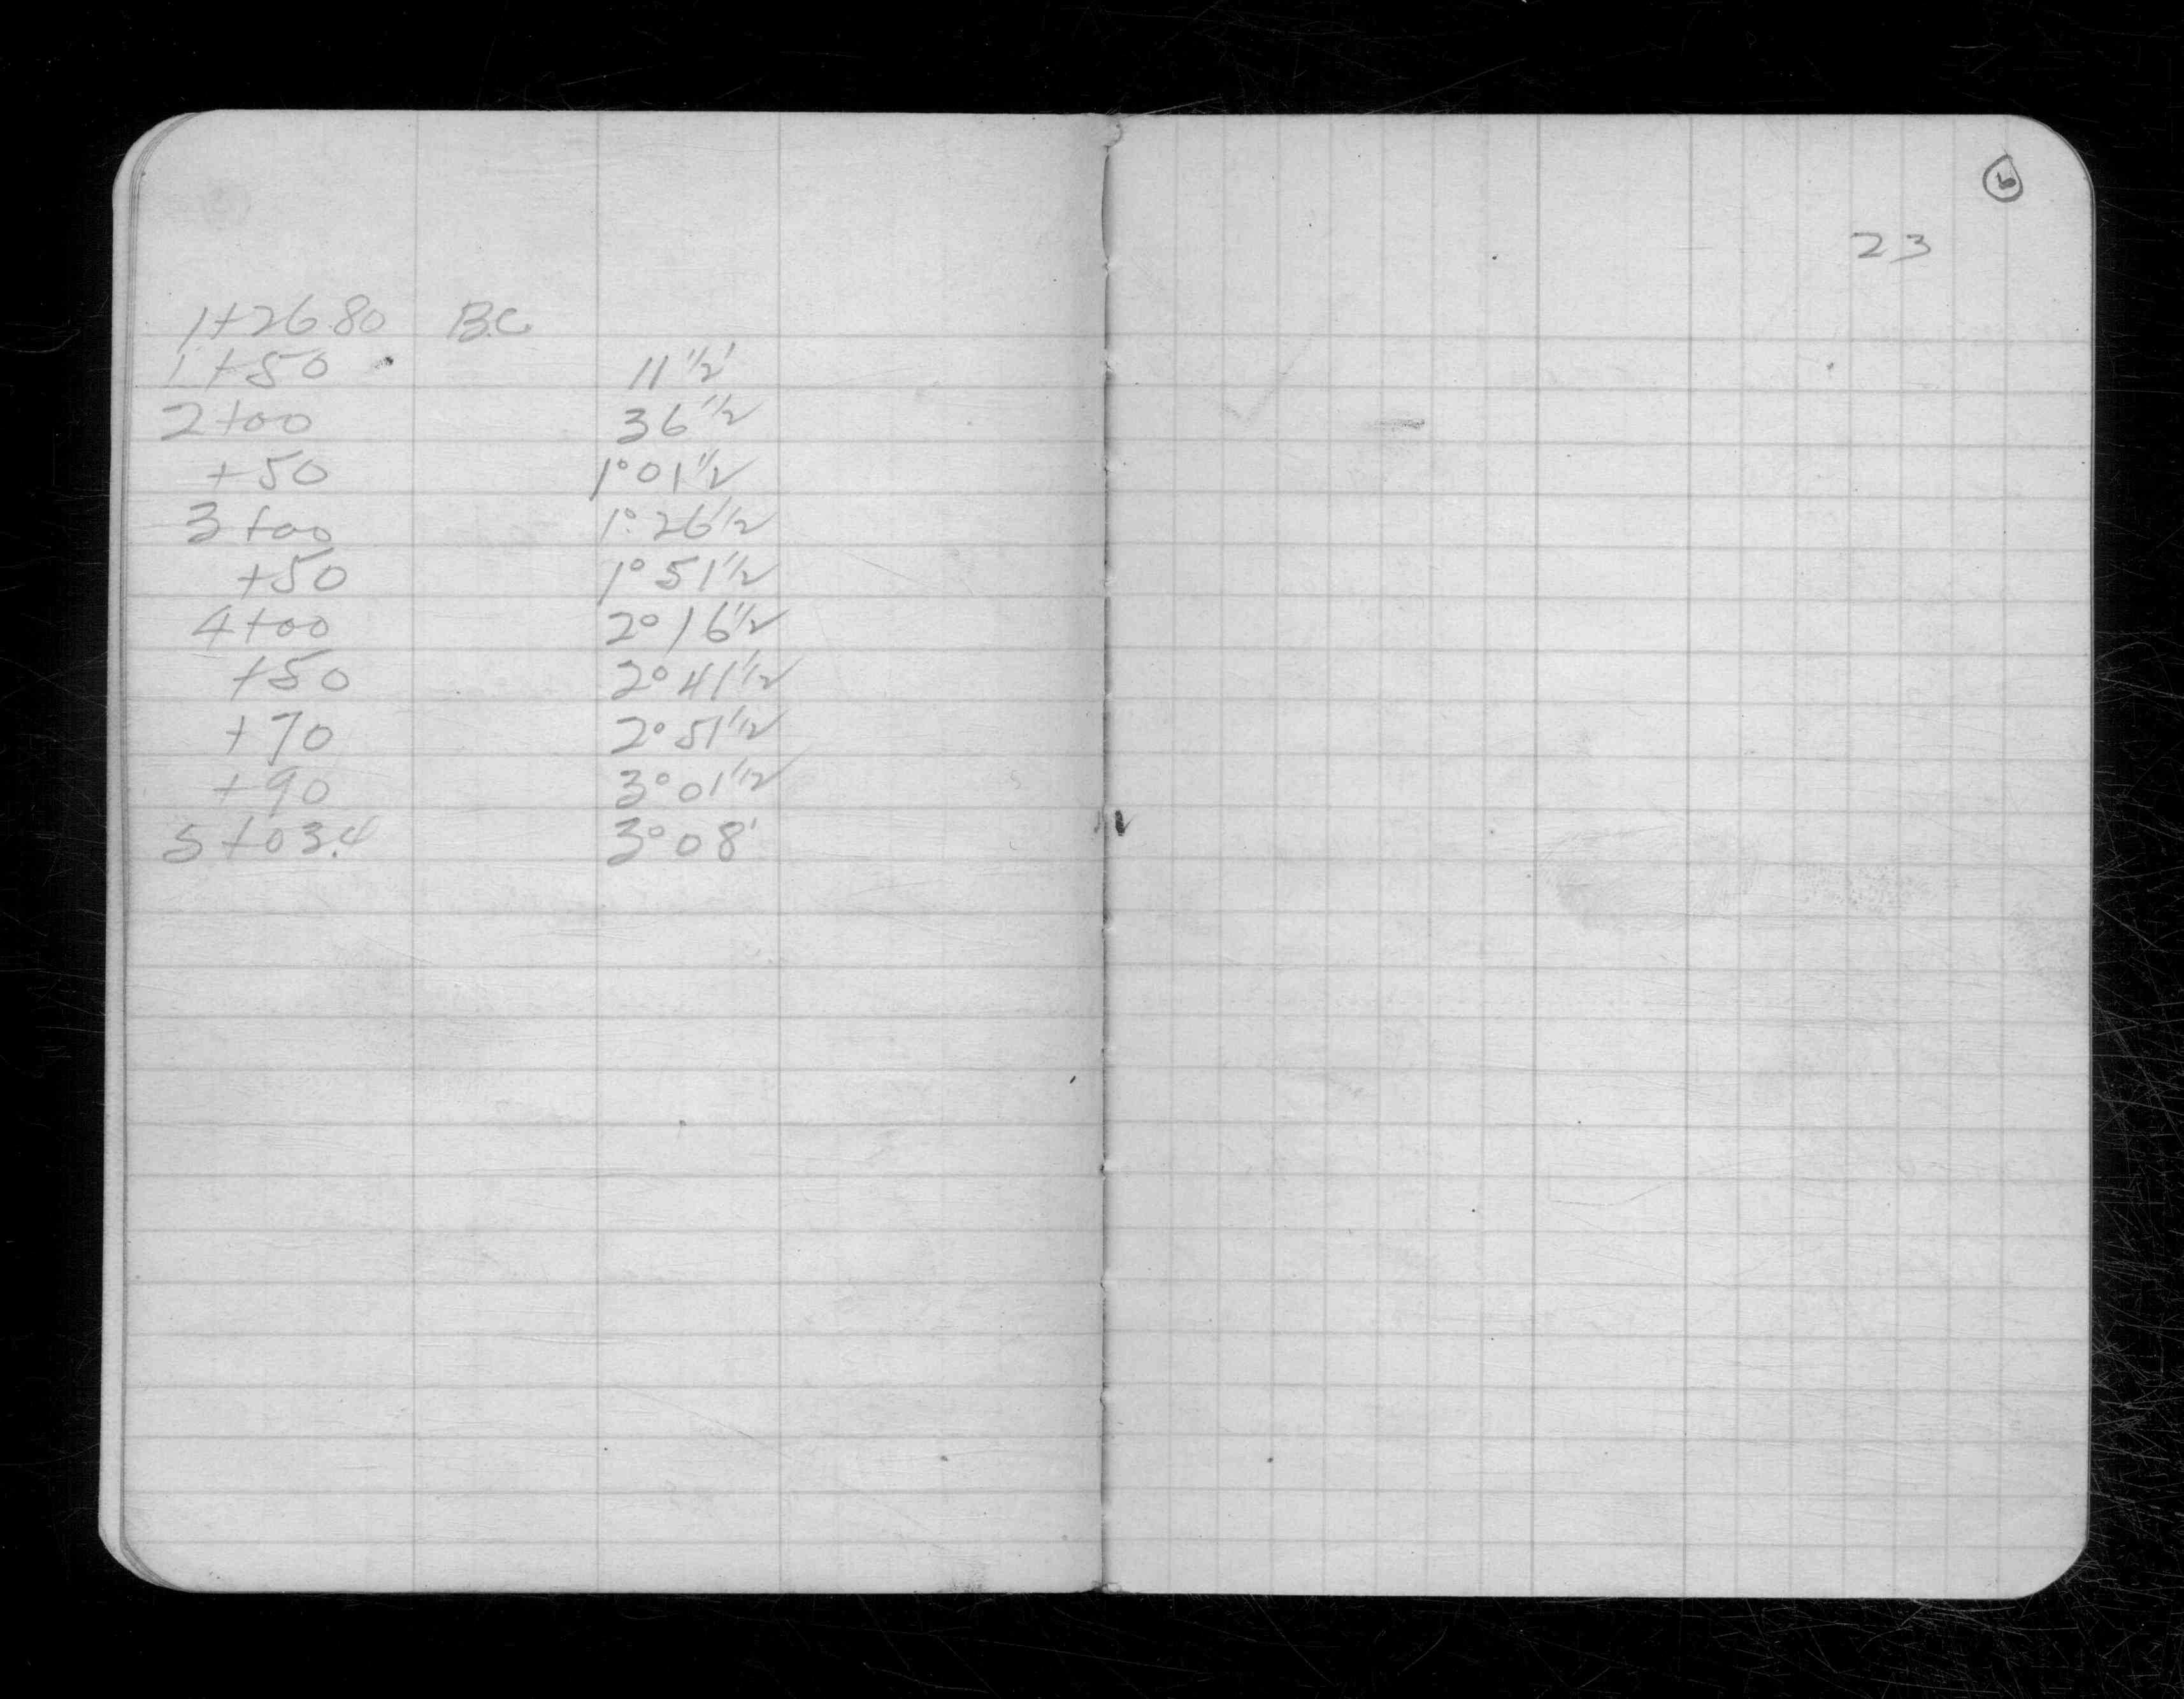 1+26.80 B.C.
1+50 11 1/2'
2+00 36 1/2
+50 1°01 1/2
3+00 1°26 1/2
+50 1°51 1/2
4+00 2°16 1/2
+50 2°41 1/2
+70 2°51 1/2
+90 3°01 1/2
5+03.4 3°08'
6
23